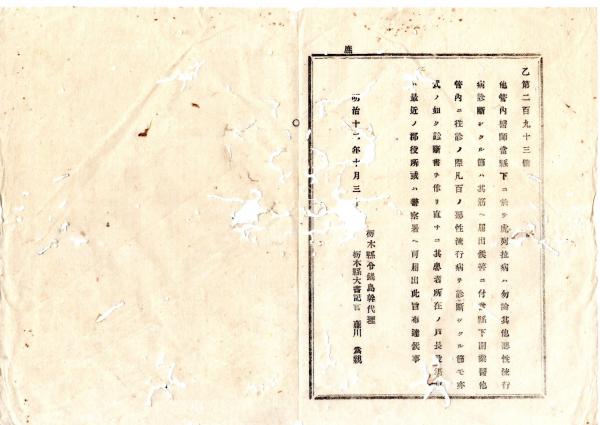 乙第二百九十三號
他管内醫師當縣下ニ於テ虎列拉病ハ勿論其他惡性流行
病診斷シタル節ハ其筋ヘ届出候筈ニ付當縣下開業醫他
管内ニ往診ノ際凡百ノ惡性流行病ヲ診斷シタル節モ亦
式ノ如ク診斷書ヲ作リ直チニ其患者所在ノ戸長
最近ノ郡役所或ハ警察署ヘ可届出此旨布達候事
明治十 年十月三
栃木縣令鍋島幹代理
栃木縣大書記官 藤川爲親